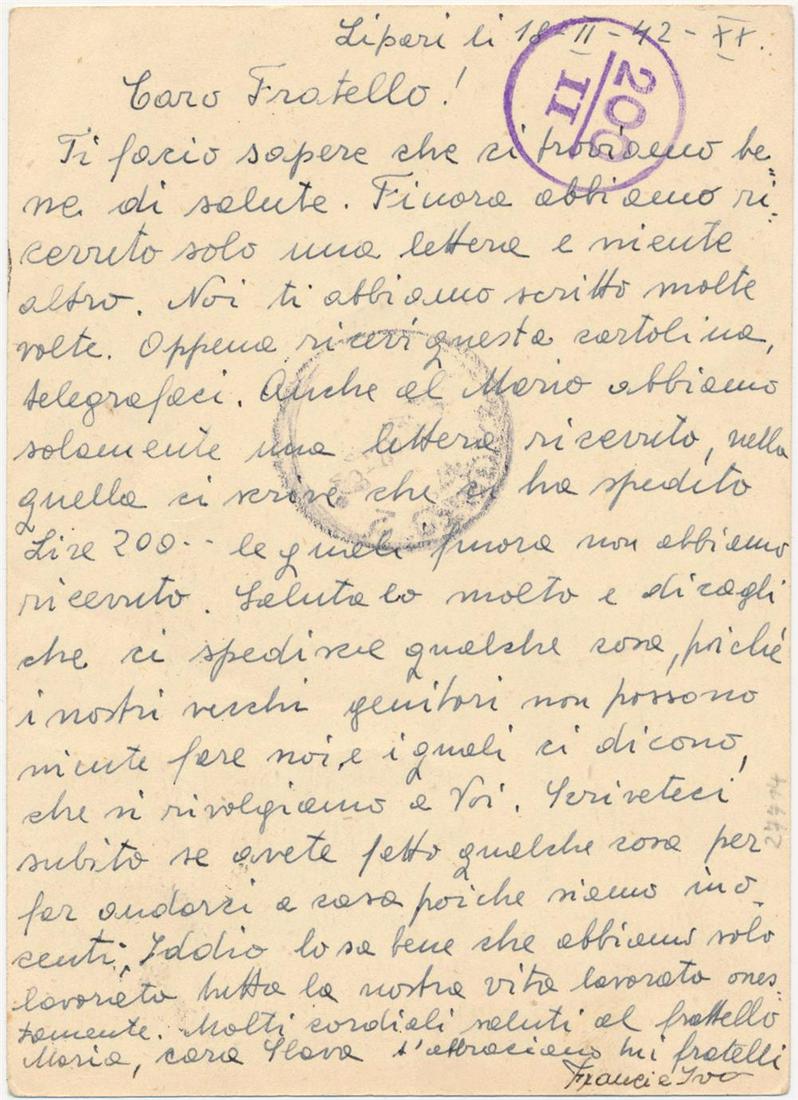 Lipari li 18-II-42-XX.
200
II
Caro Fratello!
Ti facio sapere che ci troviamo be=
ne di salute. Finora abbiamo ri=
cevuto solo una lettera e niente
altro. Noi ti abbiamo scritto molte
volte. Appena ricevi questa cartolina,
telegrafaci. Anche al Mario abbiamo
solamente una lettera ricevuto, nella
quella ci scrive che ci ha spedito
Lire 200.-- le quali finora non abbiamo
ricevuto. Salutalo molto e dicagli
che ci spedisce qualche cosa, poiché
i nostri vecchi genitori non possono
niente fare noi, e i quali ci dicono,
che si rivolgiamo a Voi. Scriveteci
subito se avete fatto qualche cosa per
far andarci a casa poiche siamo ino-
centi, Iddio lo sa bene che abbiamo solo
lavorato tutta la nostra vita lavorato ones-
tamente. Molti cordiali saluti al frattello
Maria, cara Slava t'abbraciano tui fratelli
Franci e Ivo
27914